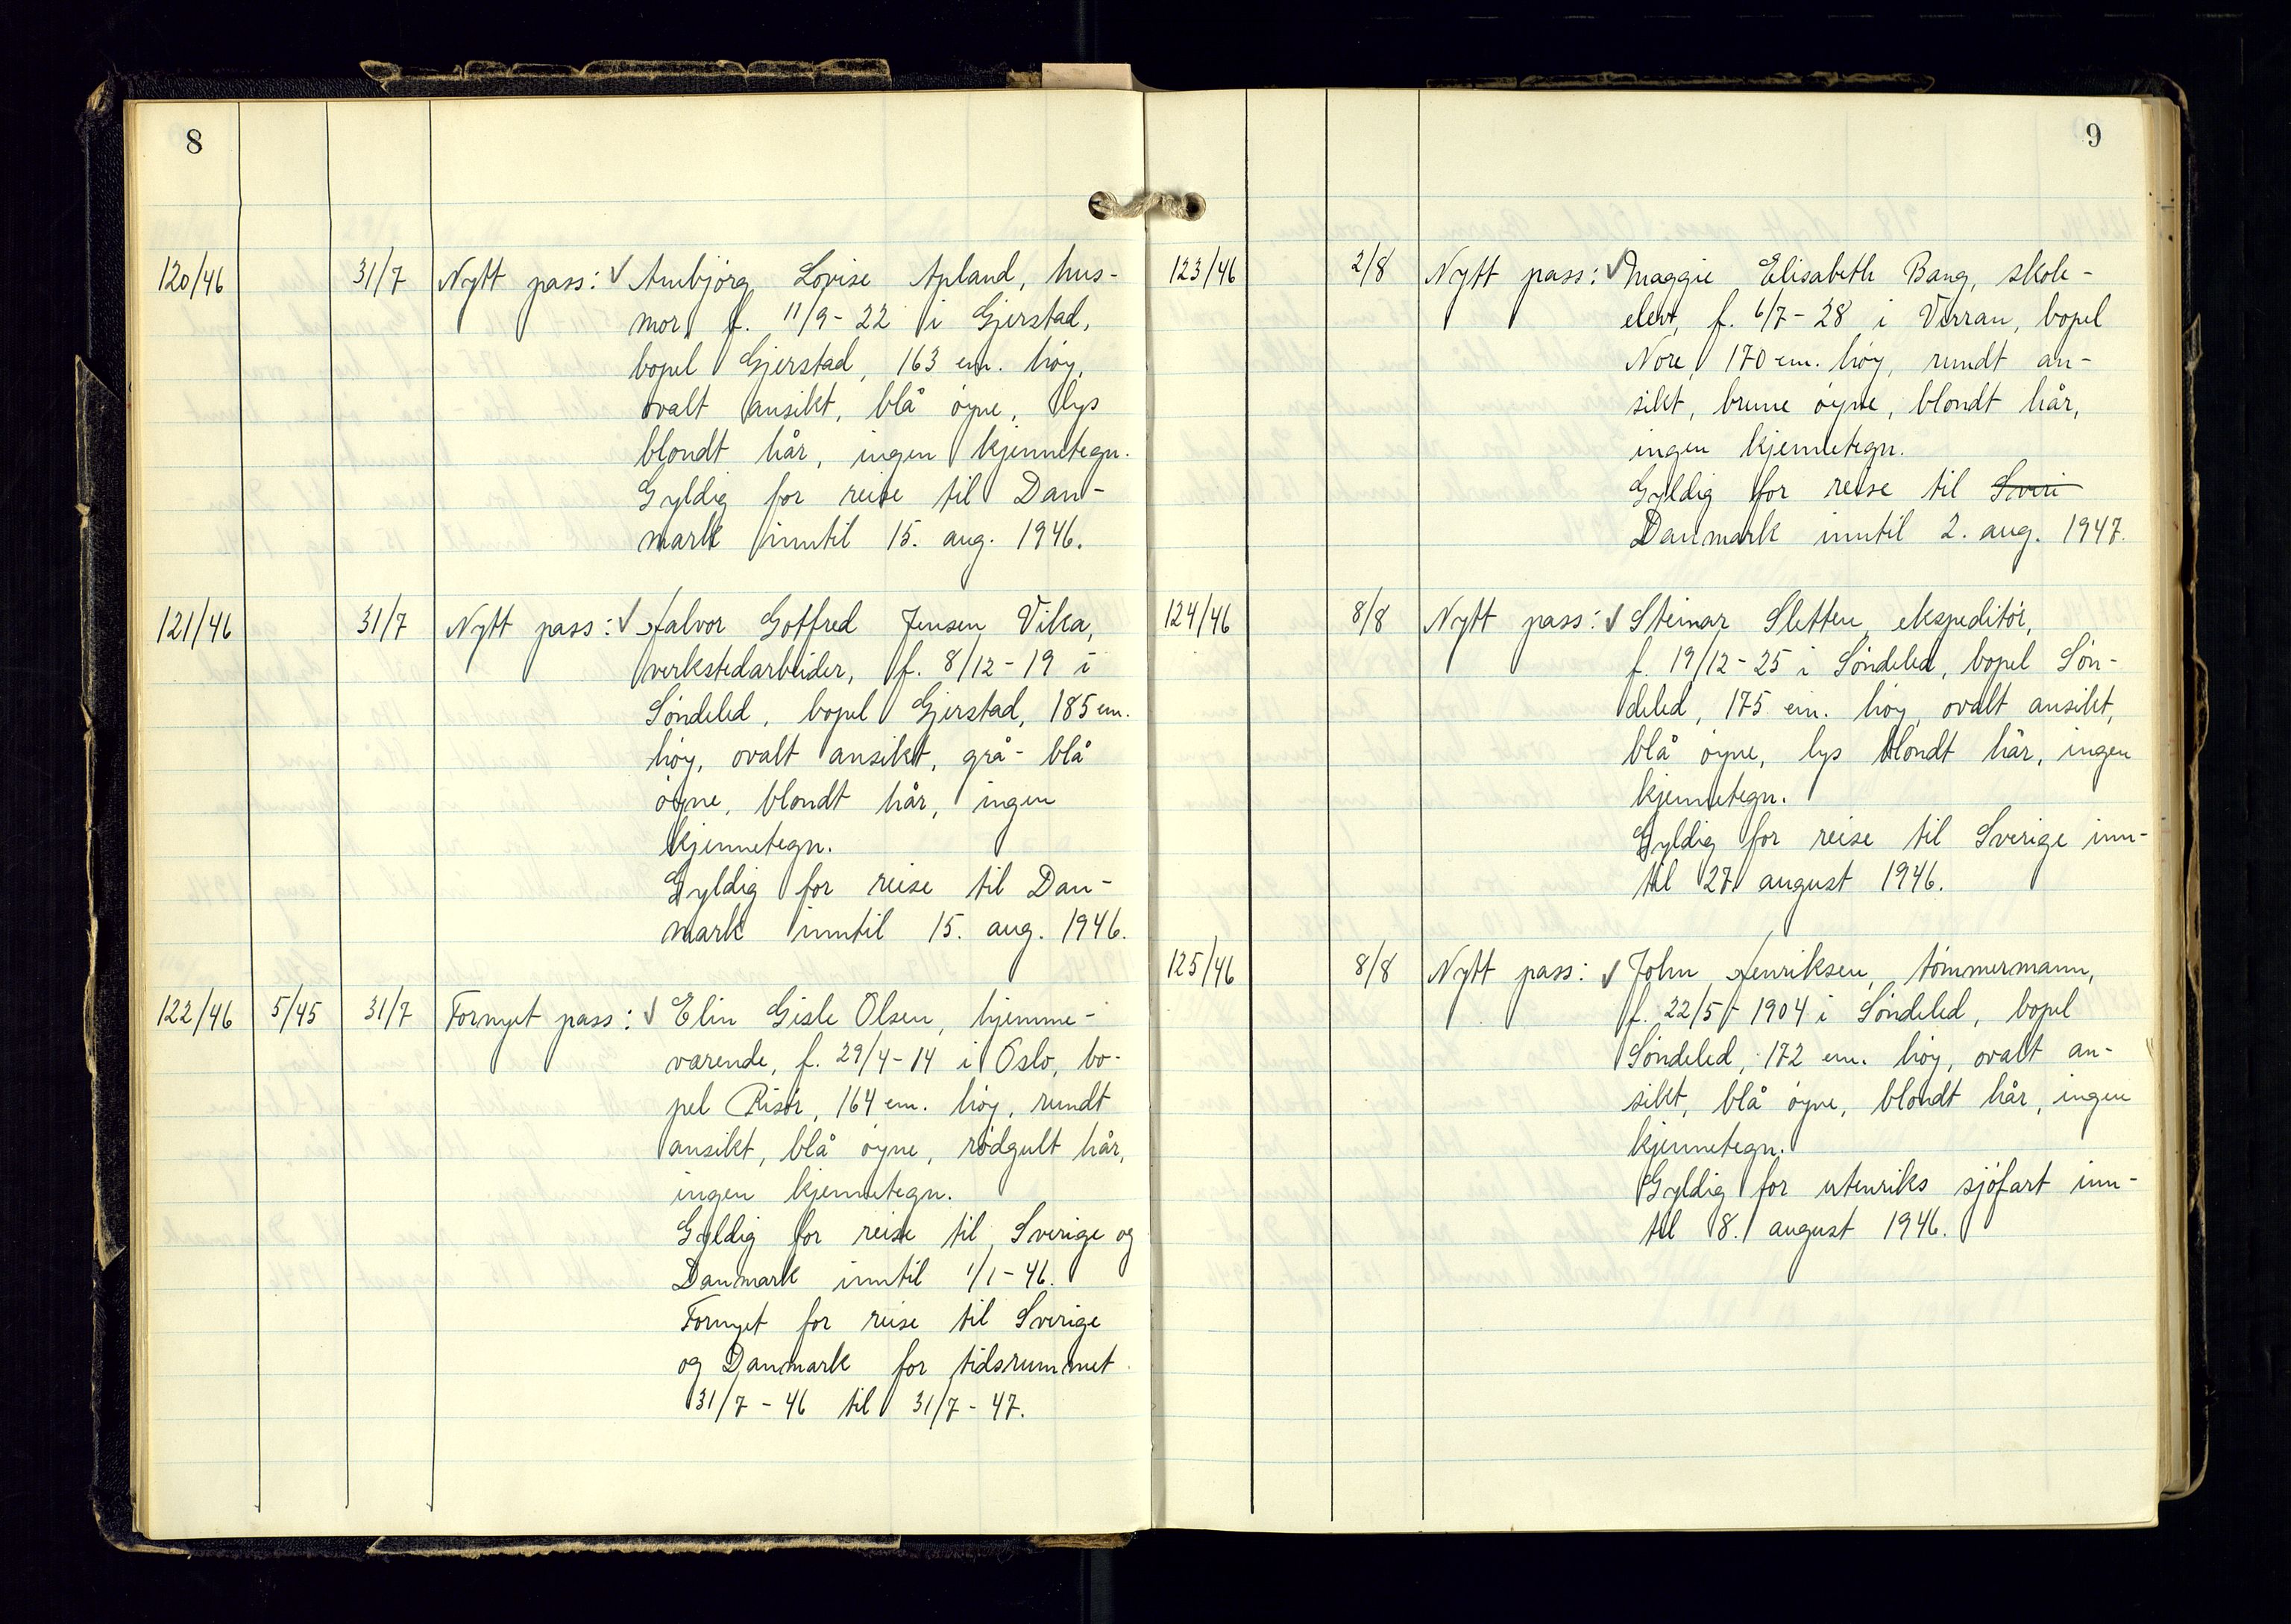 8
120/46 31/7 Nytt pass: √ Arnbjørg Lovise Apland, hus-
mor, f. 11/9-22 i Gjerstad,
bopel Gjerstad, 163 cm. høy,
ovalt ansikt, blå øyne, lys
blondt hår, ingen kjennetegn.
Gyldig for reise til Dan-
mark inntil 15. aug. 1946.
121/46 31/7 Nytt pass: √ Halvor Gotfred Jensen Vilka,
verkstedarbeider, f. 8/12-19 i
Søndeled, bopel Gjerstad, 185 cm.
høy, ovalt ansikt, grå-blå
øyne, blondt hår, ingen
kjennetegn.
Gyldig for reise til Dan-
mark inntil 15. aug. 1946.
122/46 5/45 31/7 Fornyet pass: √ Elin Gisle Olsen, hjemme-
værende, f. 29/4-14 i Oslo, bo-
pel Risør, 164 cm. høy, rundt
ansikt, blå øyne, rødgult hår,
ingen kjennetegn.
Gyldig for reise til Sverige og
Danmark inntil 1/1-46.
Fornyet for reise til Sverige
og Danmark for tidsrummet
31/7-46 til 31/7-47.
9
123/46 2/8 Nytt pass: √ Maggie Elisabeth Bang, skole-
elev, f. 6/7-28 i Verran, bopel
Nore, 170 cm. høy, rundt an-
sikt, brune øyne, blondt hår,
ingen kjennetegn.
Gyldig for reise til Sveri
Danmark inntil 2. aug. 1947.
124/46 8/8 Nytt pass: √ Steinar Sletten, ekspeditør,
f. 19/12-25 i Søndeled, bopel Søn-
deled, 175 cm. høy, ovalt ansikt,
blå øyne, lys blondt hår, ingen
kjennetegn.
Gyldig for reise til Sverige inn-
til 27. august 1946.
125/46 8/8 Nytt pass: √ John Henriksen, tømmermann,
f. 22/5-1904 i Søndeled, bopel
Søndeled, 172 cm. høy, ovalt an-
sikt, blå øyne, blondt hår, ingen
kjennetegn.
Gyldig for utenriks sjøfart inn-
til 8. august 1946.